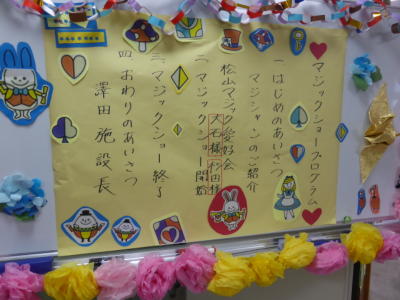 マジックショープログラム
一 はじめのあいさつ
マジシャンのご紹介
松山マジック愛好会
大石様 杉田様
二、マジックショー開始
三、マジックショー終了
四 おわりのあいさつ
澤田施設長